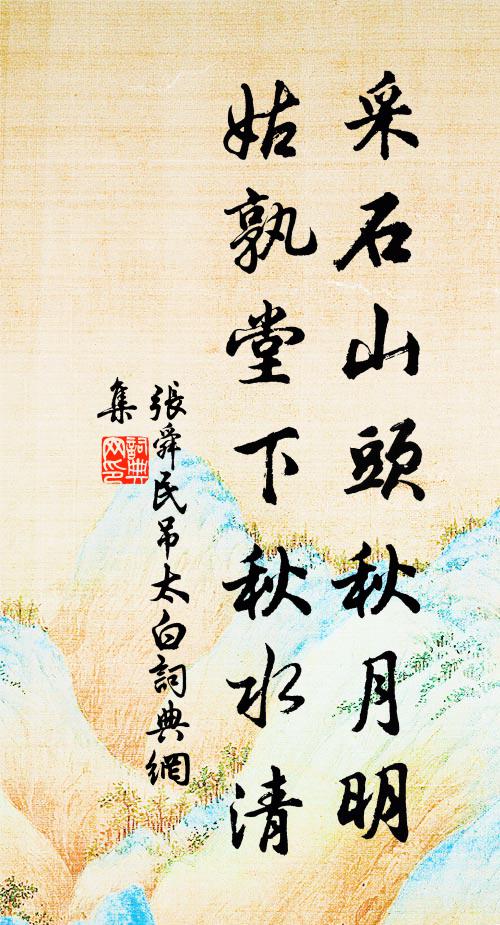 采石山頭秋月明
姑孰堂下秋水清
張舜民吊太白詞典網
集
詞典网印